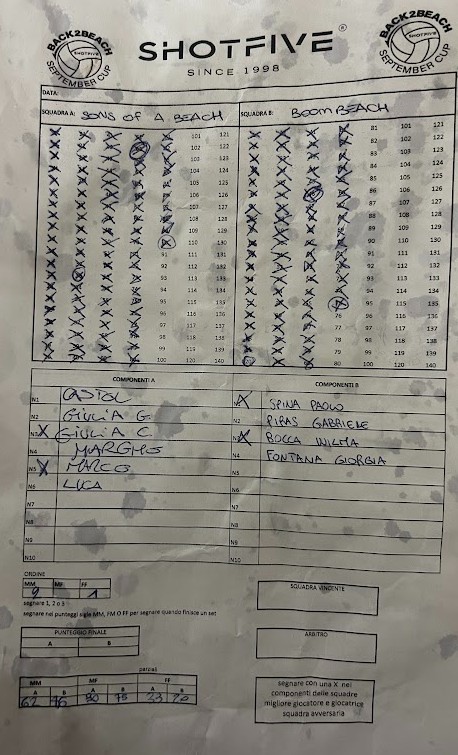 BACK2BEACH
SHOTFIVE
SEPTEMBER CUP
SHOTFIVE®
SINCE 1998
BACK2BEACH
SHOTFIVE
SEPTEMBER CUP
DATA:
SQUADRA A: SONS OF A BEACH SQUADRA B: BOOMBEACH
101 121 81 101 121
102 122 82 102 122
103 123 83 103 123
104 124 84 104 124
105 125 85 105 125
106 126 86 106 126
107 127 87 107 127
108 128 88 108 128
109 129 89 109 129
110 130 90 110 130
91 111 131 91 111 131
92 112 132 92 112 132
93 113 133 93 113 133
94 114 134 94 114 134
95 115 135 95 115 135
96 116 136 76 96 116 136
97 117 137 77 97 117 137
98 118 138 78 98 118 138
99 119 139 79 99 119 139
100 120 140 80 100 120 140
COMPONENTI A COMPONENTI B
N1 X SPINA PAOLO
N2 GIULIA G. N2 PIRAS GABRIELE
N3 X GIULIA C. X BOCCA WILMA
N4 MARGHO N4 FONTANA GIORGIA
N5 X MARCO N5
N6 LUCA N6
N7 N7
N8 N8
N9 N9
N10 N10
ORDINE
MM MF FF
1
segnare 1, 2 o 3
segnare nei punteggi sigle MM, FM O FF per segnare quando finisce un set
SQUADRA VINCENTE
PUNTEGGIO FINALE
A B
ARBITRO
parziali
MM MF FF
A B A B A B
62 76 80 75 23 20
segnare con una X nei
componenti delle squadre
migliore giocatore e giocatrice
squadra avversaria